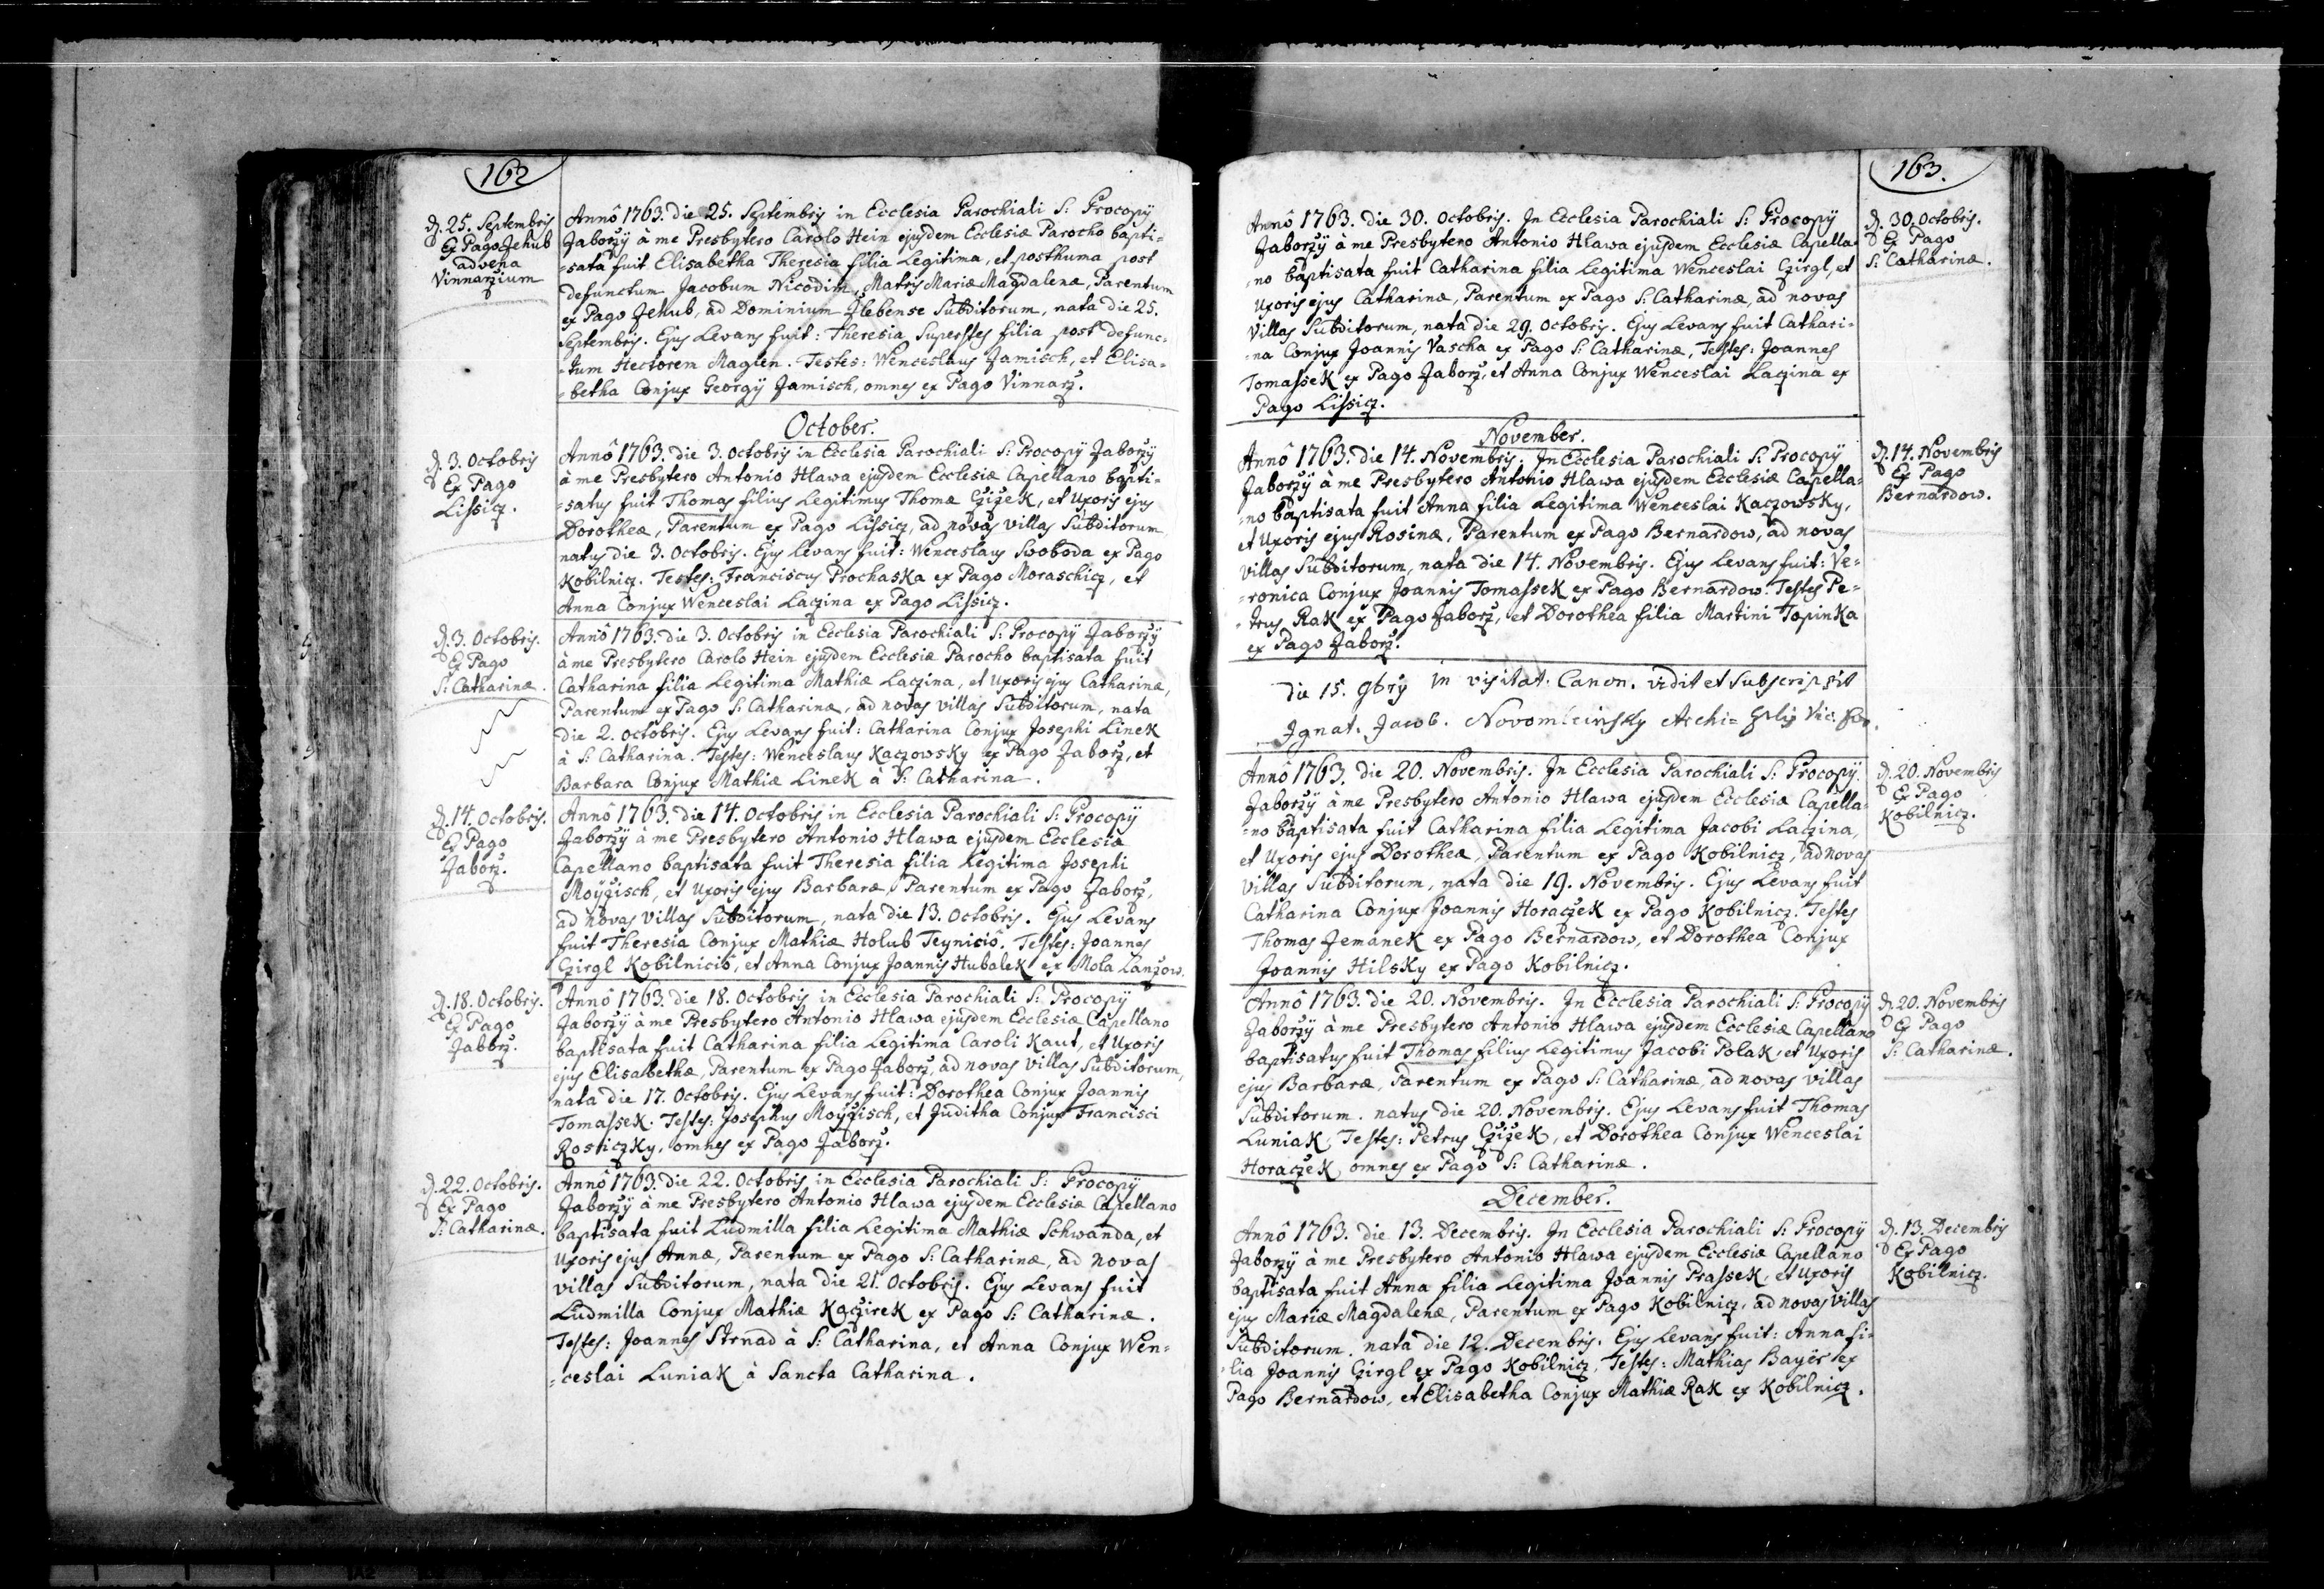 162
d. 25. Septembris
Ex Pago Jehub
advena
Vinnarzium
Annô 1763. die 25. Septembris in Ecclesia Parochiali S: Procopij
Zaborzÿ à me Presbytero Carolo Hein ejusdem Ecclesiæ Parocho bapti=
=sata fuit Elisabetha Theresia filia Legitima, et posthuma post
defunctum Jacobum Nicodim, Matris Mariæ Magdalenæ, Parentum
ex Pago Jehub, ad Dominium Zlebense Subditorum, nata die 25.
Septembris. Ejus Levans fuit: Theresia Superstes filia post defunc=
=tum Hectorem Maglen. Testes: Wenceslaus Jamisch, et Elisa=
=betha Conjux Georgÿ Jamisch, omnes ex Pago Vinnarz.
October.
d. 3. Octobris
Ex Pago
Lissicz.
Annô 1763. die 3. Octobris in Ecclesia Parochiali S: Procopÿ Zaborzÿ
à me Presbytero Antonio Hlawa ejusdem Ecclesiæ Capellano bapti=
=satus fuit Thomas filius Legitimus Thomæ Cziżek, et Uxoris ejus
Dorotheæ, Parentum ex Pago Lissicz, ad novas villas Subditorum,
natus die 3. Octobris. Ejus Levans fuit: Wenceslaus Swoboda ex Pago
Kobilnicz. Testes: Franciscus Prochaska ex Pago Moraschicz, et
Anna Conjux Wenceslai Laczina ex Pago Lissicz.
d. 3. Octobris.
Ex Pago
S: Catharinæ.
Annô 1763. die 3. Octobris in Ecclesia Parochiali S: Procopÿ Zaborzÿ
à me Presbytero Carolo Hein ejusdem Ecclesiæ Parocho baptisata fuit
Catharina filia Legitima Mathiæ Laczina, et Uxoris ejus Catharinæ,
Parentum ex Pago S: Catharinæ, ad novas villas Subditorum, nata
die 2. Octobris. Ejus Levans fuit: Catharina Conjux Josephi Linek
à S: Catharina. Testes: Wenceslaus Kaczowsky ex Pago Zaborz, et
Barbara Conjux Mathiæ Linek à S: Catharina.
d. 14. Octobris.
Ex Pago
Zaborz.
Annô 1763. die 14. Octobris in Ecclesia Parochiali S: Procopÿ
Zaborzÿ à me Presbytero Antonio Hlawa ejusdem Ecclesiæ
Capellano baptisata fuit Theresia filia Legitima Josephi
Moÿzisch, et Uxoris ejus Barbaræ, Parentum ex Pago Zaborz,
ad novas villas Subditorum, nata die 13. Octobris. Ejus Levans
fuit Theresia Conjux Mathiæ Holub Teynicio. Testes: Joannes
Czirgl Kobilnicio, et Anna Conjux Joannis Hubalek ex Mola Lanzow.
d. 18. Octobris.
Ex Pago
Zaborz.
Annô 1763. die 18. Octobris in Ecclesia Parochiali S: Procopÿ
Zaborzÿ à me Presbytero Antonio Hlawa ejusdem Ecclesiæ Capellano
baptisata fuit Catharina filia Legitima Caroli Kaut, et Uxoris
ejus Elisabethæ, Parentum ex Pago Zaborz, ad novas villas Subditorum,
nata die 17. Octobris. Ejus Levans fuit: Dorothea Conjux Joannis
Tomassek. Testes: Josephus Moÿzisch, et Juditha Conjux Francisci
Rosiczky, omnes ex Pago Zaborz.
d. 22. Octobris.
Ex Pago
S: Catharinæ.
Annô 1763. die 22. Octobris in Ecclesia Parochiali S: Procopÿ
Zaborzÿ à me Presbytero Antonio Hlawa ejusdem Ecclesiæ Capellano
baptisata fuit Ludmilla filia Legitima Mathiæ Schwanda, et
Uxoris ejus Annæ, Parentum ex Pago S: Catharinæ, ad novas
villas Subditorum, nata die 21. Octobris. Ejus Levans fuit
Ludmilla Conjux Mathiæ Kaczirek ex Pago S: Catharinæ.
Testes: Joannes Strnad à S: Catharina, et Anna Conjux Wen=
=ceslai Luniak à Sancta Catharina.
163.
d. 30. Octobris.
Ex Pago
S: Catharinæ.
Annô 1763. die 30. Octobris. In Ecclesia Parochiali S: Procopÿ
Zaborzÿ à me Presbytero Antonio Hlawa ejusdem Ecclesiæ Capella=
=no baptisata fuit Catharina filia Legitima Wenceslai Czirgl, et
Uxoris ejus Catharinæ, Parentum ex Pago S: Catharinæ, ad novas
villas Subditorum, nata die 29. Octobris. Ejus Levans fuit Cathari=
=na Conjux Joannis Vascha ex Pago S: Catharinæ, Testes: Joannes
Tomassek ex Pago Zaborz, et Anna Conjux Wenceslai Laczina ex
Pago Lissicz.
November.
d. 14. Novembris
Ex Pago
Bernardow.
Annô 1763. die 14. Novembris. In Ecclesia Parochiali S: Procopÿ
Zaborzÿ à me Presbytero Antonio Hlawa ejusdem Ecclesiæ Capella=
=no baptisata fuit Anna filia Legitima Wenceslai Kaczowsky,
et Uxoris ejus Rosinæ, Parentum ex Pago Bernardow, ad novas
villas Subditorum, nata die 14. Novembris. Ejus Levans fuit: Ve=
=ronica Conjux Joannis Tomassek ex Pago Bernardow. Testes Pe=
=trus Rak ex Pago Zaborz, et Dorothea filia Martini Topinka
ex Pago Zaborz.
die 15. 9brÿ in visitat. Canon. vidit et subscripsit
Ignat. Jacob. Archi= Vic. For.
d. 20. Novembris
Ex Pago
Kobilnicz.
Annô 1763. die 20. Novembris. In Ecclesia Parochiali S: Procopÿ.
Zaborzÿ à me Presbytero Antonio Hlawa ejusdem Ecclesiæ Capella=
=no baptisata fuit Catharina filia Legitima Jacobi Laczina,
et Uxoris ejus Dorotheæ, Parentum ex Pago Kobilnicz, ad novas
villas Subditorum, nata die 19. Novembris. Ejus Levans fuit
Catharina Conjux Joannis Horaczek ex Pago Kobilnicz. Testes
Thomas Zemanek ex Pago Bernardow, et Dorothea Conjux
Joannis Hilsky ex Pago Kobilnicz.
d. 20. Novembris
Ex Pago
S: Catharinæ.
Annô 1763. die 20. Novembris. In Ecclesia Parochiali S: Procopÿ
Zaborzÿ à me Presbytero Antonio Hlawa ejusdem Ecclesiæ Capellano
baptisatus fuit Thomas filius Legitimus Jacobi Polak, et Uxoris
ejus Barbaræ, Parentum ex Pago S: Catharinæ, ad novas villas
Subditorum. natus die 20. Novembris. Ejus Levans fuit Thomas
Luniak, Testes: Petrus Cziżek, et Dorothea Conjux Wenceslai
Horaczek, omnes ex Pago S: Catharinæ.
December.
d. 13. Decembris
Ex Pago
Kobilnicz.
Annô 1763. die 13. Decembris. In Ecclesia Parochiali S: Procopÿ
Zaborzÿ à me Presbytero Antonio Hlawa ejusdem Ecclesiæ Capellano
baptisata fuit Anna filia Legitima Joannis Prassek, et Uxoris
ejus Mariæ Magdalenæ, Parentum ex Pago Kobilnicz, ad novas villas
Subditorum. nata die 12. Decembris. Ejus Levans fuit: Anna fi=
=lia Joannis Czirgl ex Pago Kobilnicz, Testes: Mathias Bayër ex
Pago Bernardow, et Elisabetha Conjux Mathiæ Rak ex Kobilnicz.